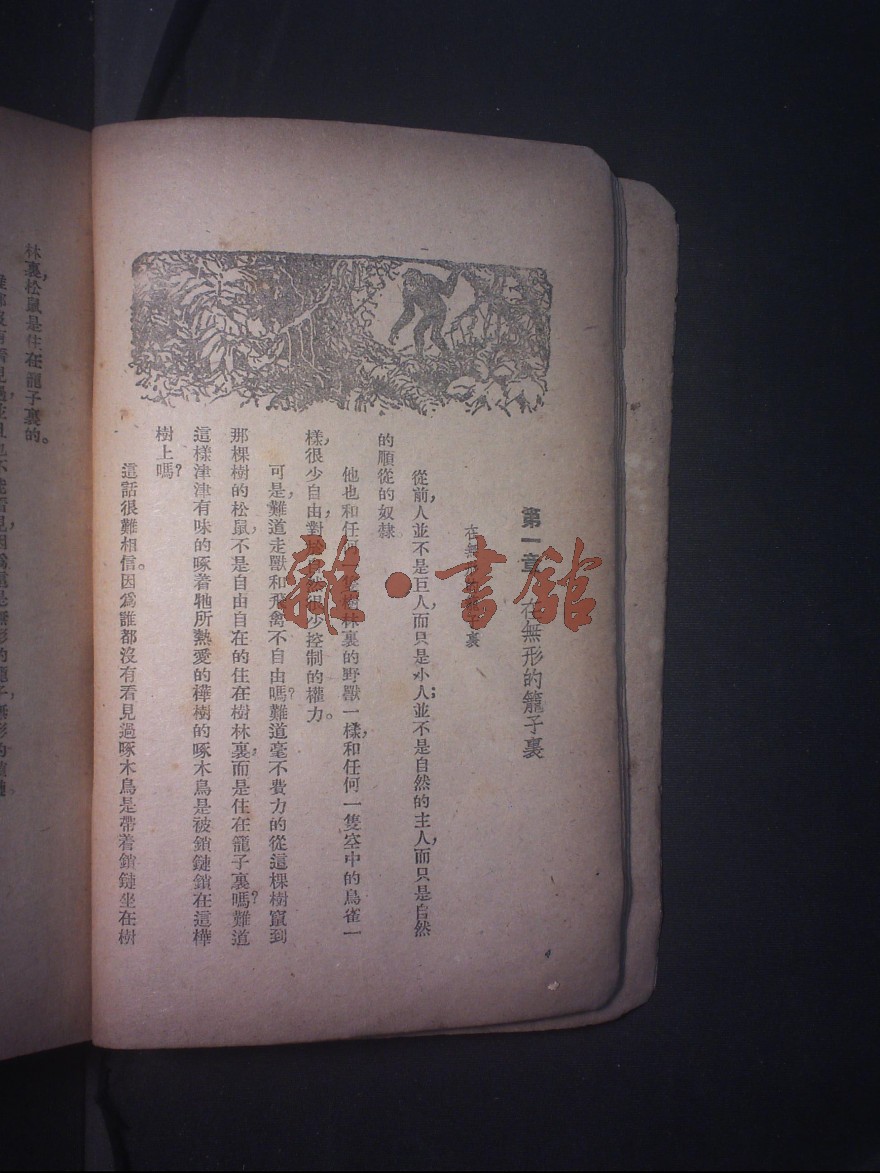 第一章 在無形的籠子裏
在無形的籠子裏
從前,人並不是巨人,而只是小人;並不是自然的主人,而只是自然
的順從的奴隸。
他也和任何一隻樹林裏的野獸一樣,和任何一隻空中的鳥雀一
樣,很少自由,對於自然很少控制的權力。
可是,難道走獸和飛禽不自由嗎?難道毫不費力的從這棵樹竄到
那棵樹的松鼠,不是自由自在的住在樹林裏,而是住在籠子裏嗎?難道
這樣津津有味的啄着牠所熱愛的樺樹的啄木鳥是被鎖鏈鎖在這樺
樹上嗎?
這話很難相信。因爲誰都沒有看見過啄木鳥是帶着鎖鏈坐在樹
林裏,松鼠是住在籠子裏的。
雜·書館